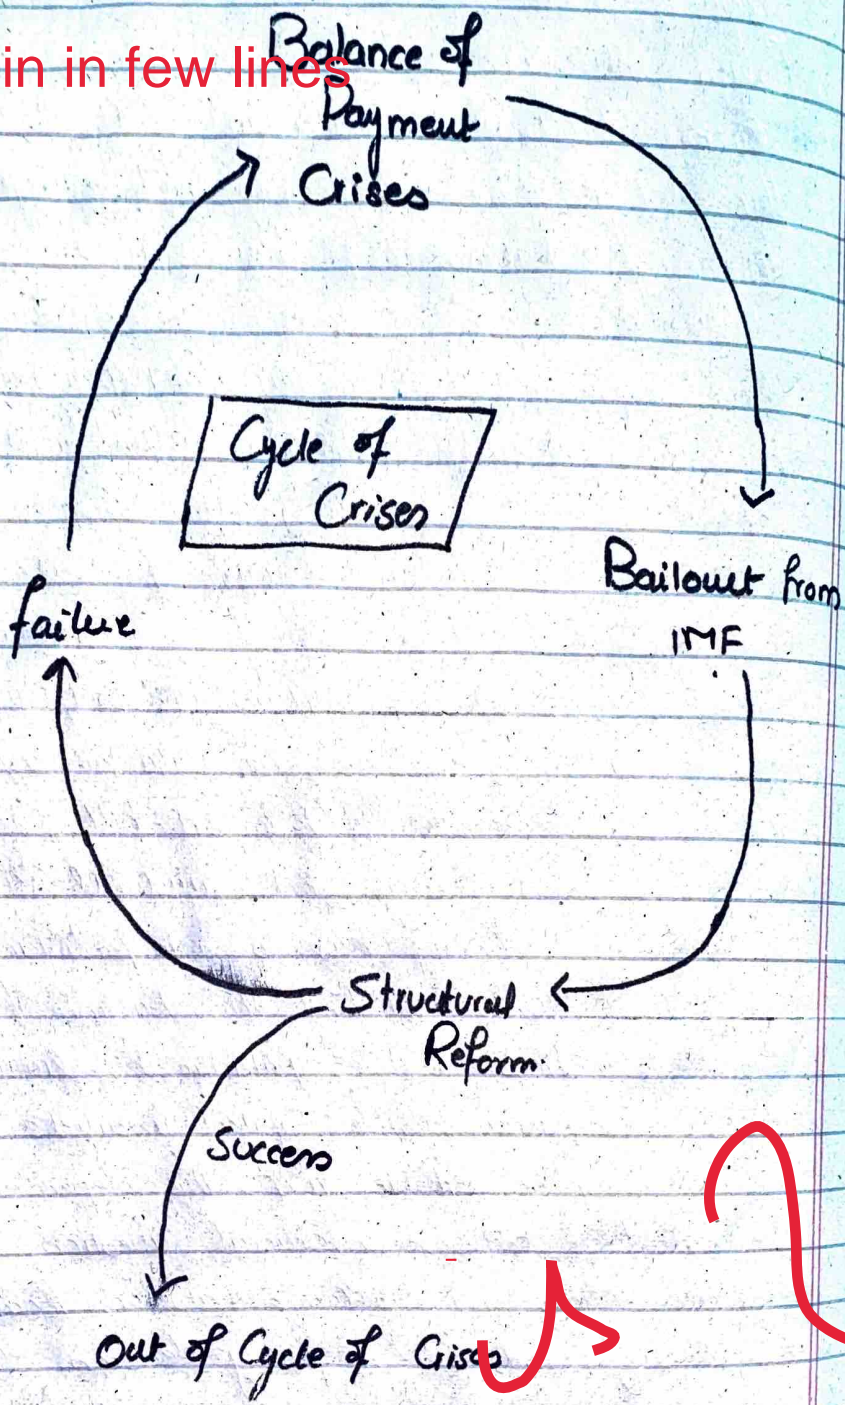 in in few lines
Balance of
Payment
Crises
Cycle of
Crises
Bailout from
IMF
failure
Structural
Reform.
Success
Out of Cycle of Crises